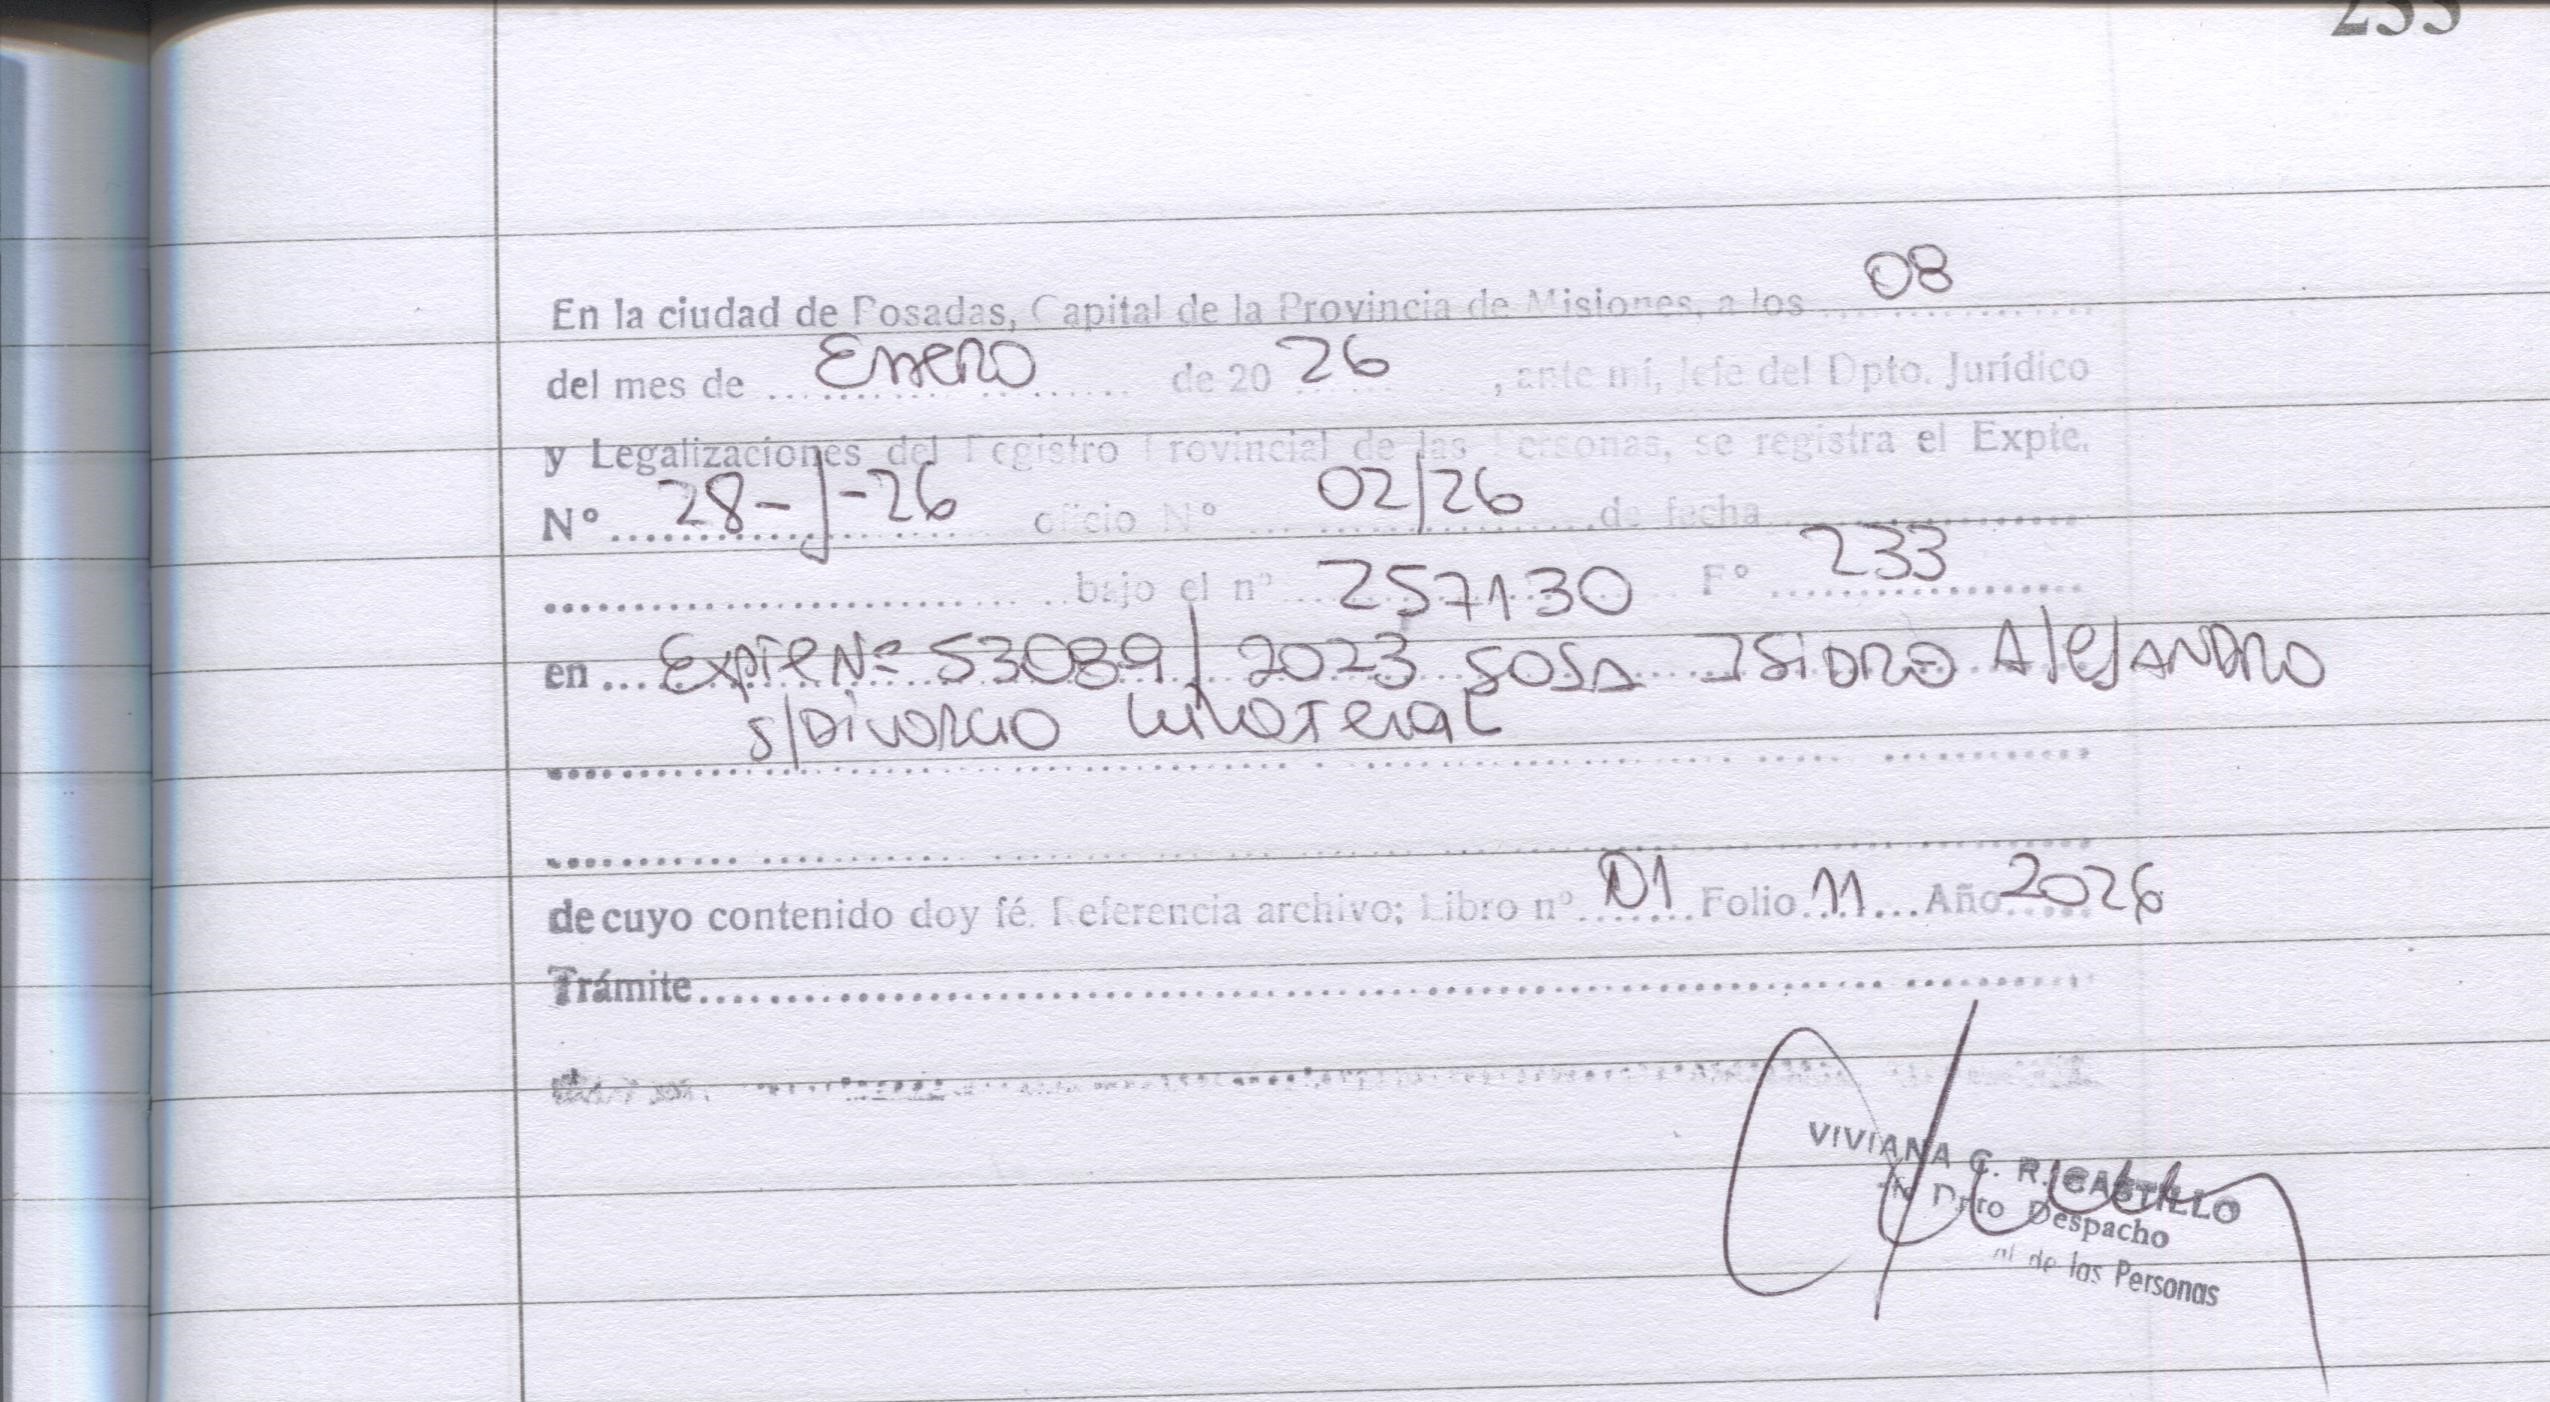 233
En la ciudad de Posadas, Capital de la Provincia de Misiones, a los 08
del mes de Enero de 20 26 , ante mí, Jefe del Dpto. Jurídico
y Legalizaciones del Registro Provincial de las Personas, se registra el Expte.
N° 28-J-26 oficio N° 02/26 de fecha
bajo el n° 257130 F° 233
en Expte Nº 53089/2023 SOSA ISIDRO AlejANDRO
s/Divorcio Unilateral
de cuyo contenido doy fé. Referencia archivo: Libro n° D1 Folio 11 Año 2026
Trámite
VIVIANA C. R. CASTILLO
Dpto Despacho
de las Personas